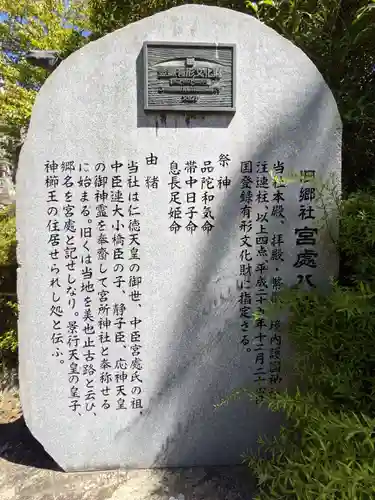 登録有形文化財
旧郷社 宮處八
当社本殿、拝殿、幣
注連柱、以上四点、平成二十五年十二月二十
国登録有形文化財に指定さる。
祭神
品陀和気命
帯中日子命
息長足姫命
由緒
当社は仁徳天皇の御世、中臣宮處氏の祖、
中臣連大小橋臣の子、静子臣、応神天皇
の御神霊を奉齋して宮所神社と奉称せる
に始まる。旧くは当地を美也止古路と云ひ、
郷名を宮處と記せしなり。景行天皇の皇子、
神櫛王の住居せられし処と伝ふ。